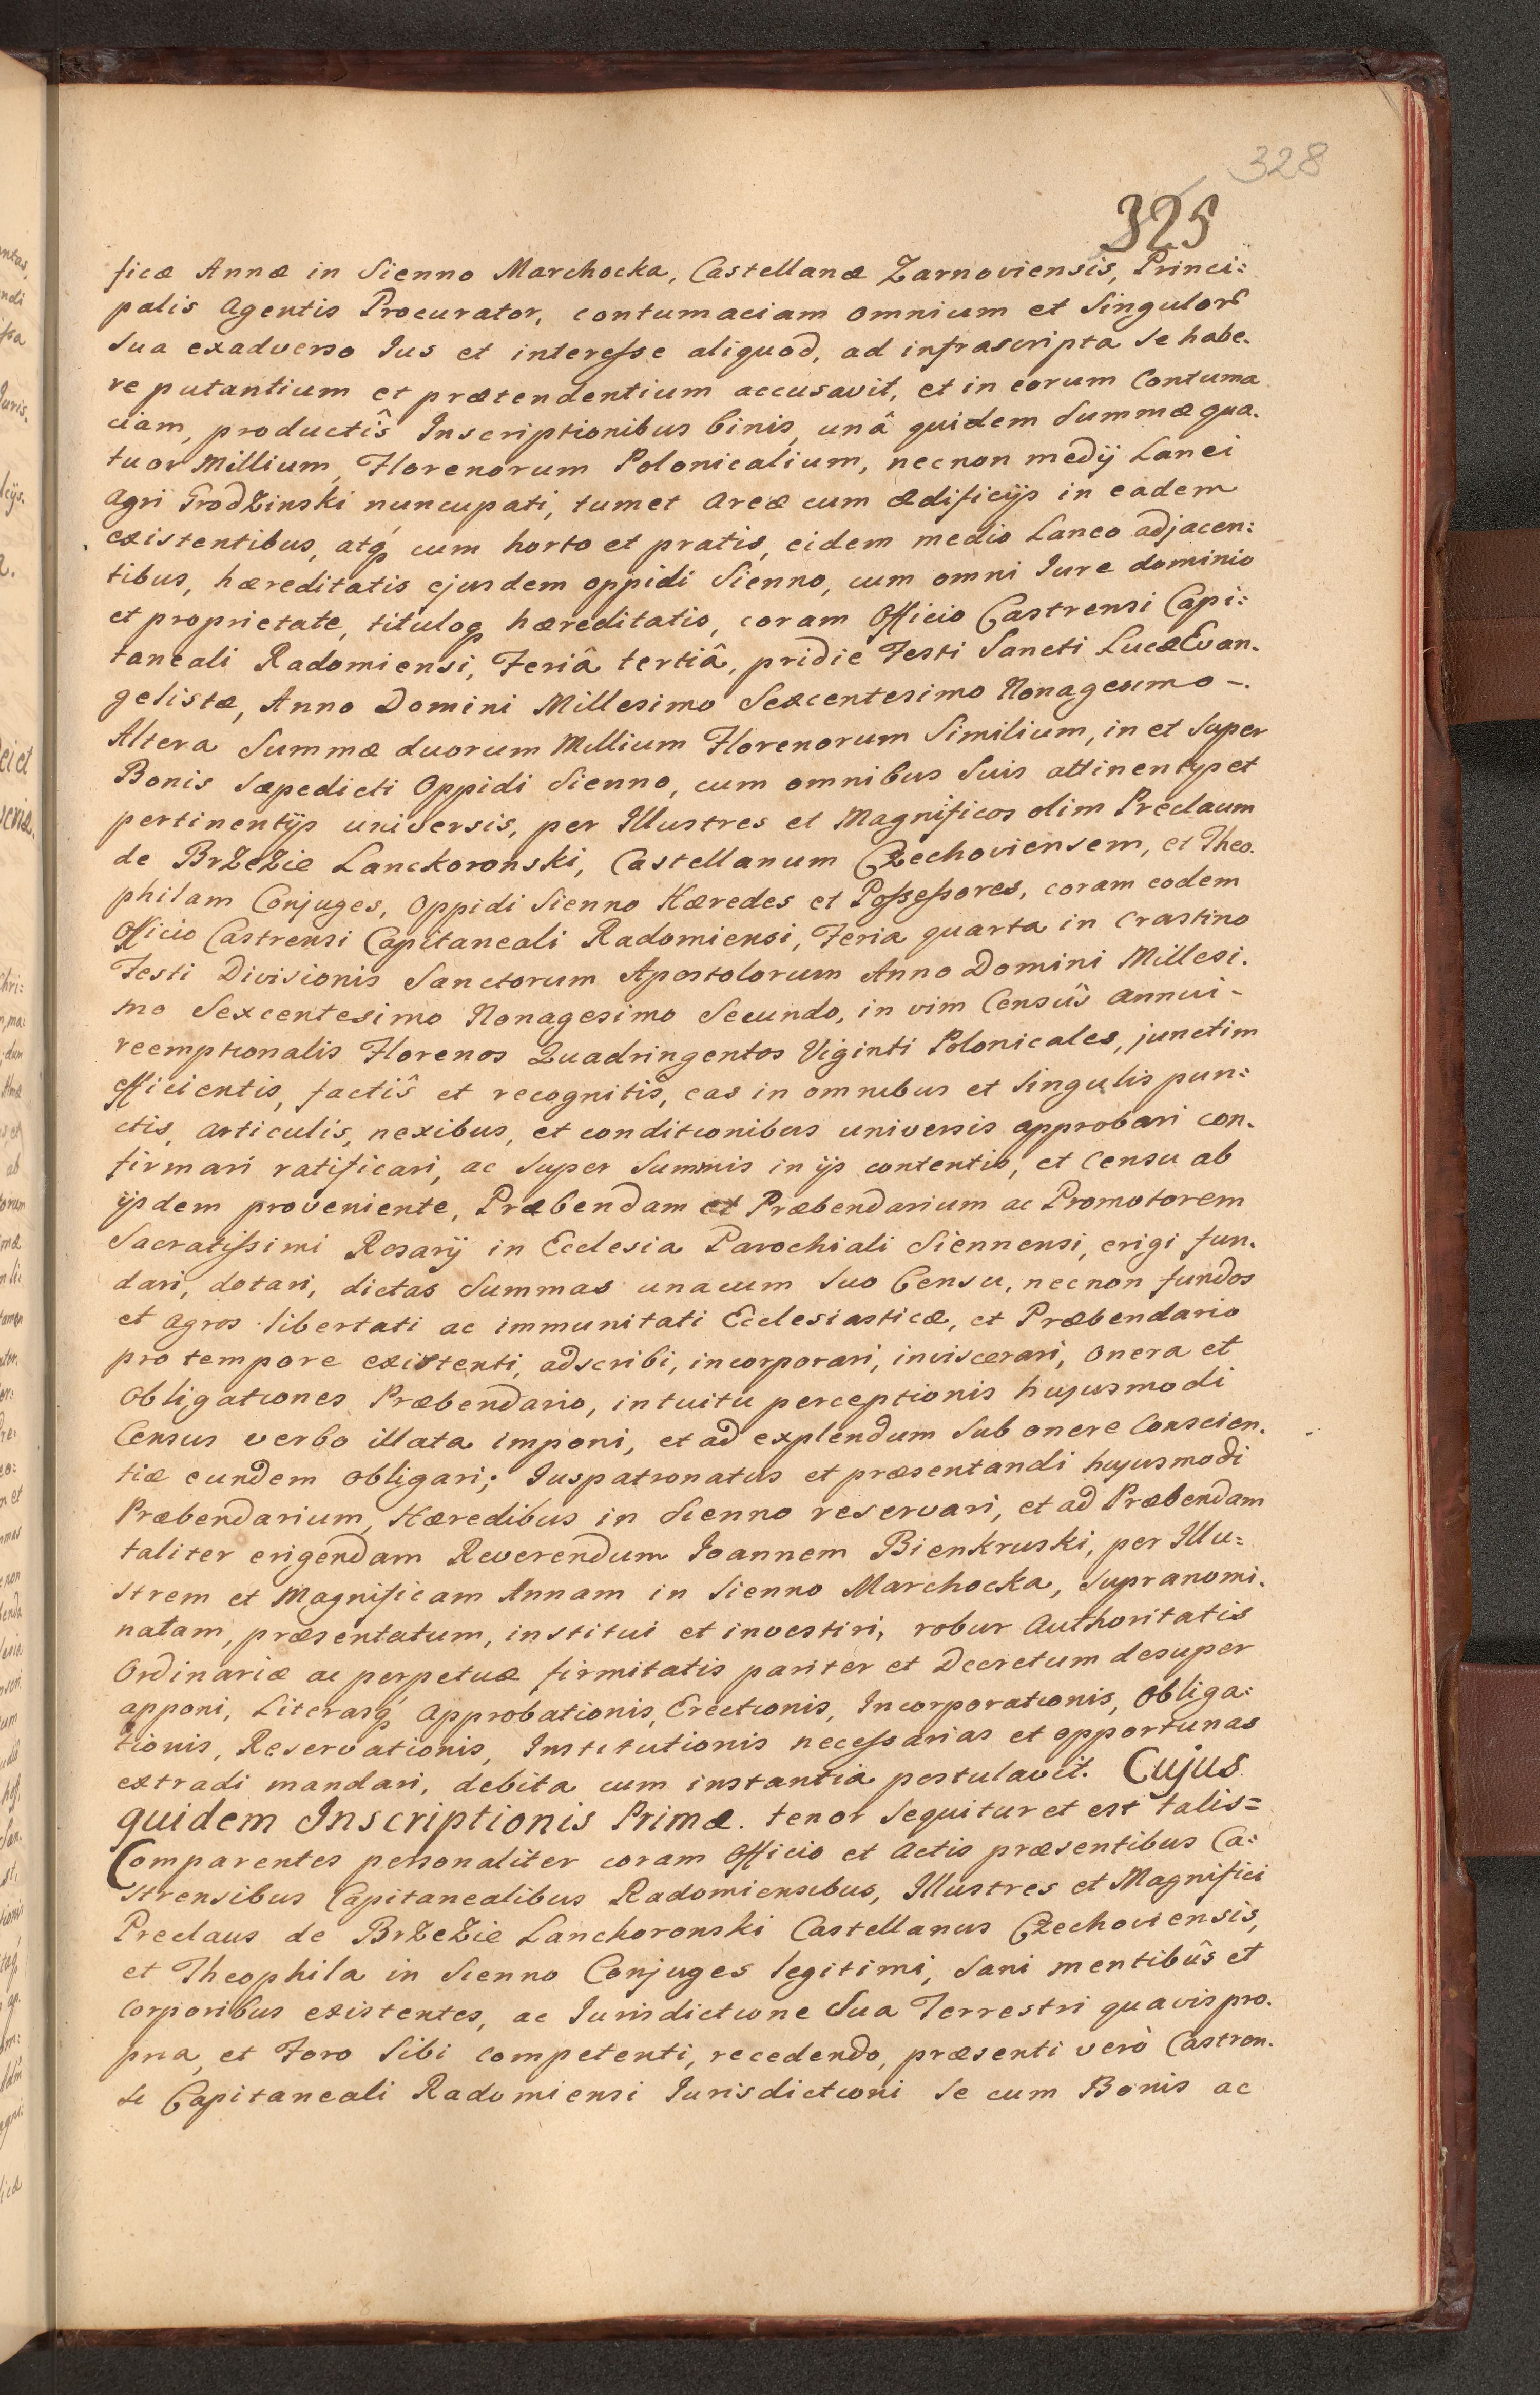 328
325
ficæ Annæ in Sienno Marchocka, Castellanæ Zarnoviensis, Princi:
palis Agentis Procurator, contumaciam omnium et Singulor
Sua exadverso Jus et interesse aliquod, ad infrascripta se habe.
re putantium et prætendentium accusavit, et in eorum Contuma
ciam, productîs Inscriptionibus binis, unâ quidem Summæ qua.
tuor Millium, Florenorum Polonicalium, necnon medij Lanei
Agri Grodzinski nuncupati, tumet Areæ cum ædificijs in eadem
existentibus, atq́ cum horto et pratis, eidem medio Laneo adjacen:
tibus, hæreditatis ejusdem oppidi Sienno, cum omni Jure dominio
et proprietate, tituloq hæreditatis, coram Officio Castrensi Capi:
taneali Radomiensi, Feriâ tertiâ, pridie Festi Sancti Lucæ Evan.
gelistæ, Anno Domini Millesimo Sexcentesimo Nonagesimo -.
Altera Summæ duorum Millium Florenorum Similium, in et super
Bonis Sæpedicti Oppidi Sienno, cum omnibus Suis attinentijs et
pertinentijs universis, per Illustres et Magnificos olim Preclaum
de Brzezie Lanckoronski, Castellanum Czechoviensem, et Theo.
philam Conjuges, Oppidi Sienno Hæredes et Possessores, coram eodem
Officio Castrensi Capitaneali Radomiensi, Feria quarta in Crastino
Festi Divisionis Sanctorum Apostolorum Anno Domini Millesi.
mo Sexcentesimo Nonagesimo Secundo, in vim Censûs Annui -
reemptionalis Florenos Quadringentos Viginti Polonicales, junctim
efficientis, factîs et recognitis, eas in omnibus et Singulis pun:
ctis, articulis, nexibus, et conditionibus universis approbari con.
firmari ratificari, ac super Summis in ijs contentis, et Censu ab
ijsdem proveniente, Præbendam et Præbendarium ac Promotorem
Sacratissimi Rosarij in Ecclesia Parochiali Siennensi, erigi fun.
dari, dotari, dictas Summas unacum suo Censu, necnon fundos
et Agros libertati ac immunitati Ecclesiasticæ, et Præbendario
pro tempore existenti, adscribi, incorporari, inviscerari, onera et
Obligationes Præbendario, intuitu perceptionis hujusmodi
Census verbo illata imponi, et ad explendum Sub onere Conscien.
tiæ eundem obligari; Juspatronatus et præsentandi hujusmodi
Præbendarium, Hæredibus in Sienno reservari, et ad Præbendam
taliter erigendam Reverendum Joannem Bienkruski, per Illu:
strem et Magnificam Annam in Sienno Marchocka, supranomi.
natam, præsentatum, institui et investiri, robur Authoritatis
Ordinariæ ac perpetuæ firmitatis pariter et Decretum desuper
apponi, Literasq́ Approbationis, Erectionis, Incorporationis, Obliga:
tionis, Reservationis, Institutionis necessarias et opportunas
extradi mandari, debita cum instantia postulavit. Cujus
quidem Inscriptionis Primæ. tenor Sequitur et est talis=
Comparentes personaliter coram Officio et Actis præsentibus Ca:
strensibus Capitanealibus Radomiensibus, Illustres et Magnifici
Preclaus de Brzezie Lanckoronski Castellanus Czechoviensis,
et Theophila in Sienno Conjuges legitimi, Sani mentibûs et
Corporibus existentes, ac Jurisdictione Sua Terrestri quavis pro.
pria, et Foro Sibi competenti, recedendo, præsenti verò Castren.
si Capitaneali Radomiensi Jurisdictioni se cum Bonis ac